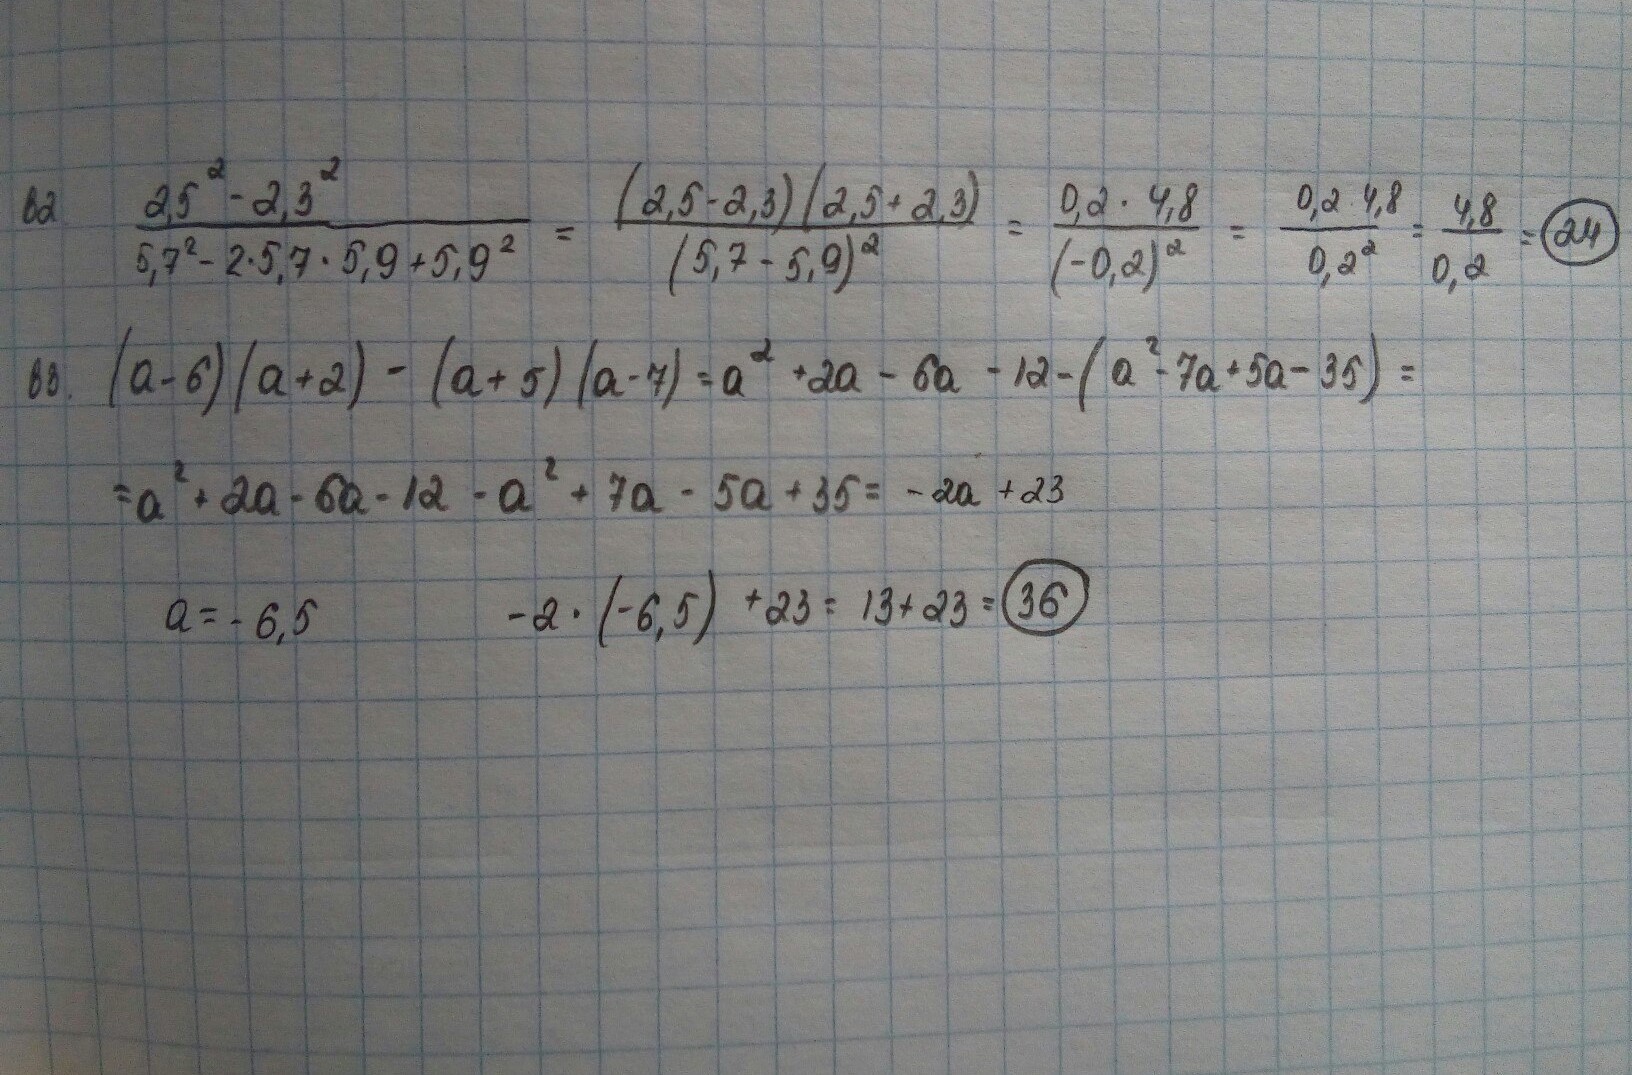 В2 (2,5² - 2,3²)/(5,7² - 2·5,7·5,9 + 5,9²) = ((2,5 - 2,3)(2,5 + 2,3))/((5,7 - 5,9)²) = (0,2 · 4,8)/((-0,2)²) = (0,2 · 4,8)/(0,2²) = 4,8/0,2 = 24
В3. (a - 6)(a + 2) - (a + 5)(a - 7) = a² + 2a - 6a - 12 - (a² - 7a + 5a - 35) =
= a² + 2a - 6a - 12 - a² + 7a - 5a + 35 = -2a + 23
a = -6,5 -2 · (-6,5) + 23 = 13 + 23 = 36